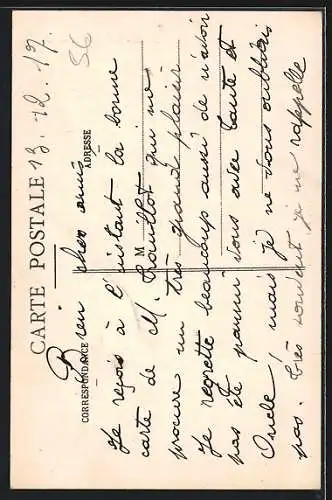 CARTE POSTALE
13. 12. 17.
56
CORRESPONDANCE
ADRESSE
M
Bien cher ami
Je reçois à l'instant la bonne
carte de M. qui me
procure un très grand plaisir
Je regrette beaucoup aussi de n'avoir
pas été parmi vous avec Tante et
Oncle, mais je ne vous oublierai
pas. Très souvent je me rappelle